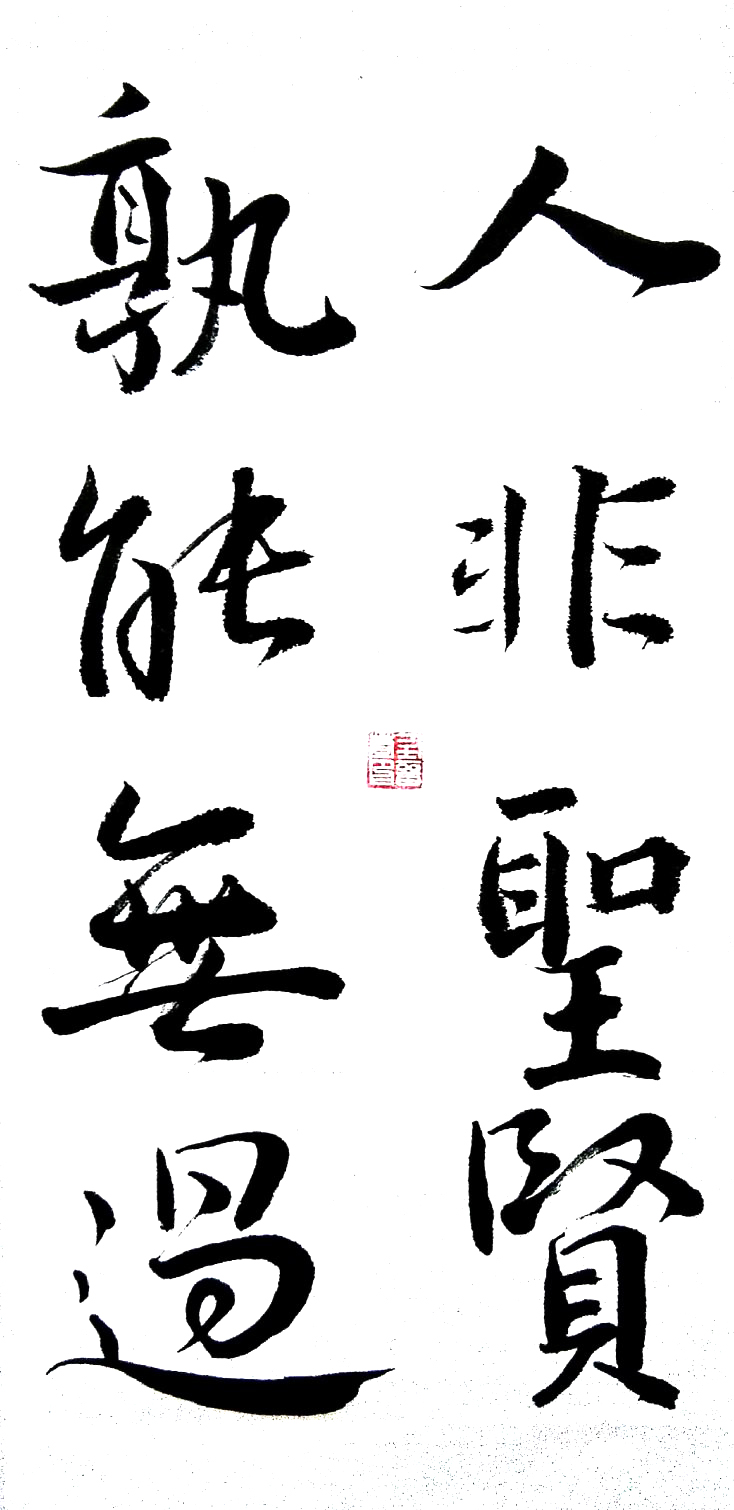 人非聖賢
孰能無過